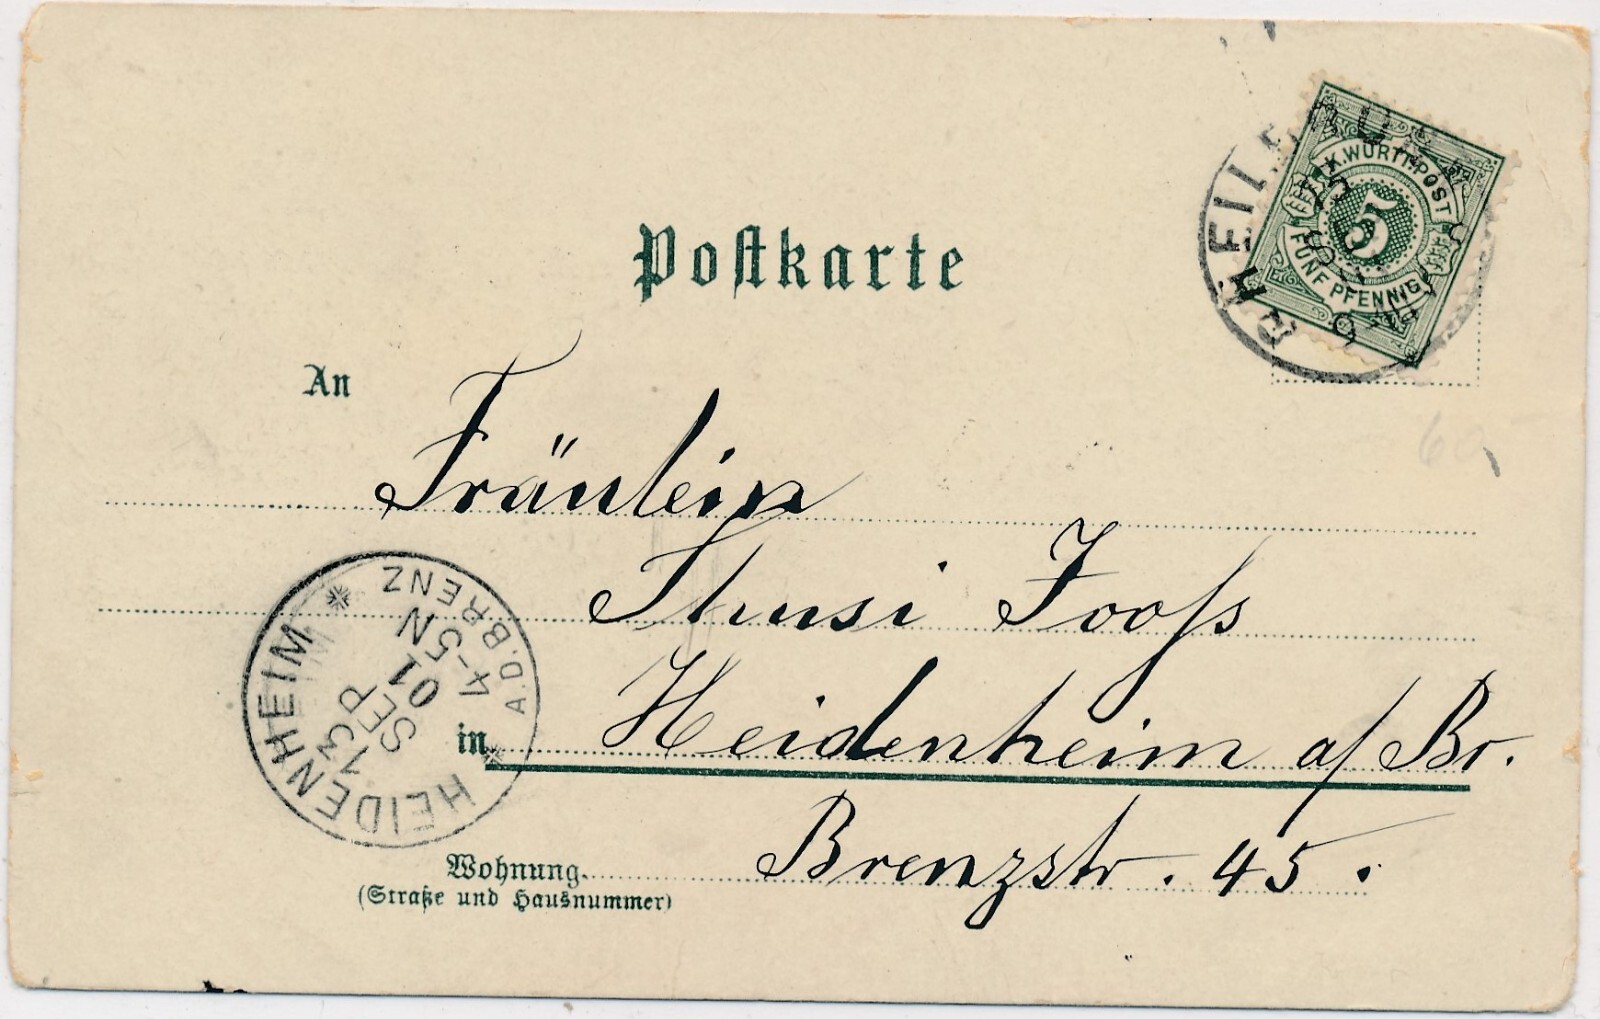 Postkarte
K. WÜRTT. POST
5
FÜNF PFENNIG
HEILBRONN
An
Fräulein
Thusi Jooß
in Heidenheim a/ Br.
HEIDENHEIM
A.D. BRENZ
13 SEP 01
4-5N
Wohnung. Brenzstr. 45.
(Straße und Hausnummer)
60